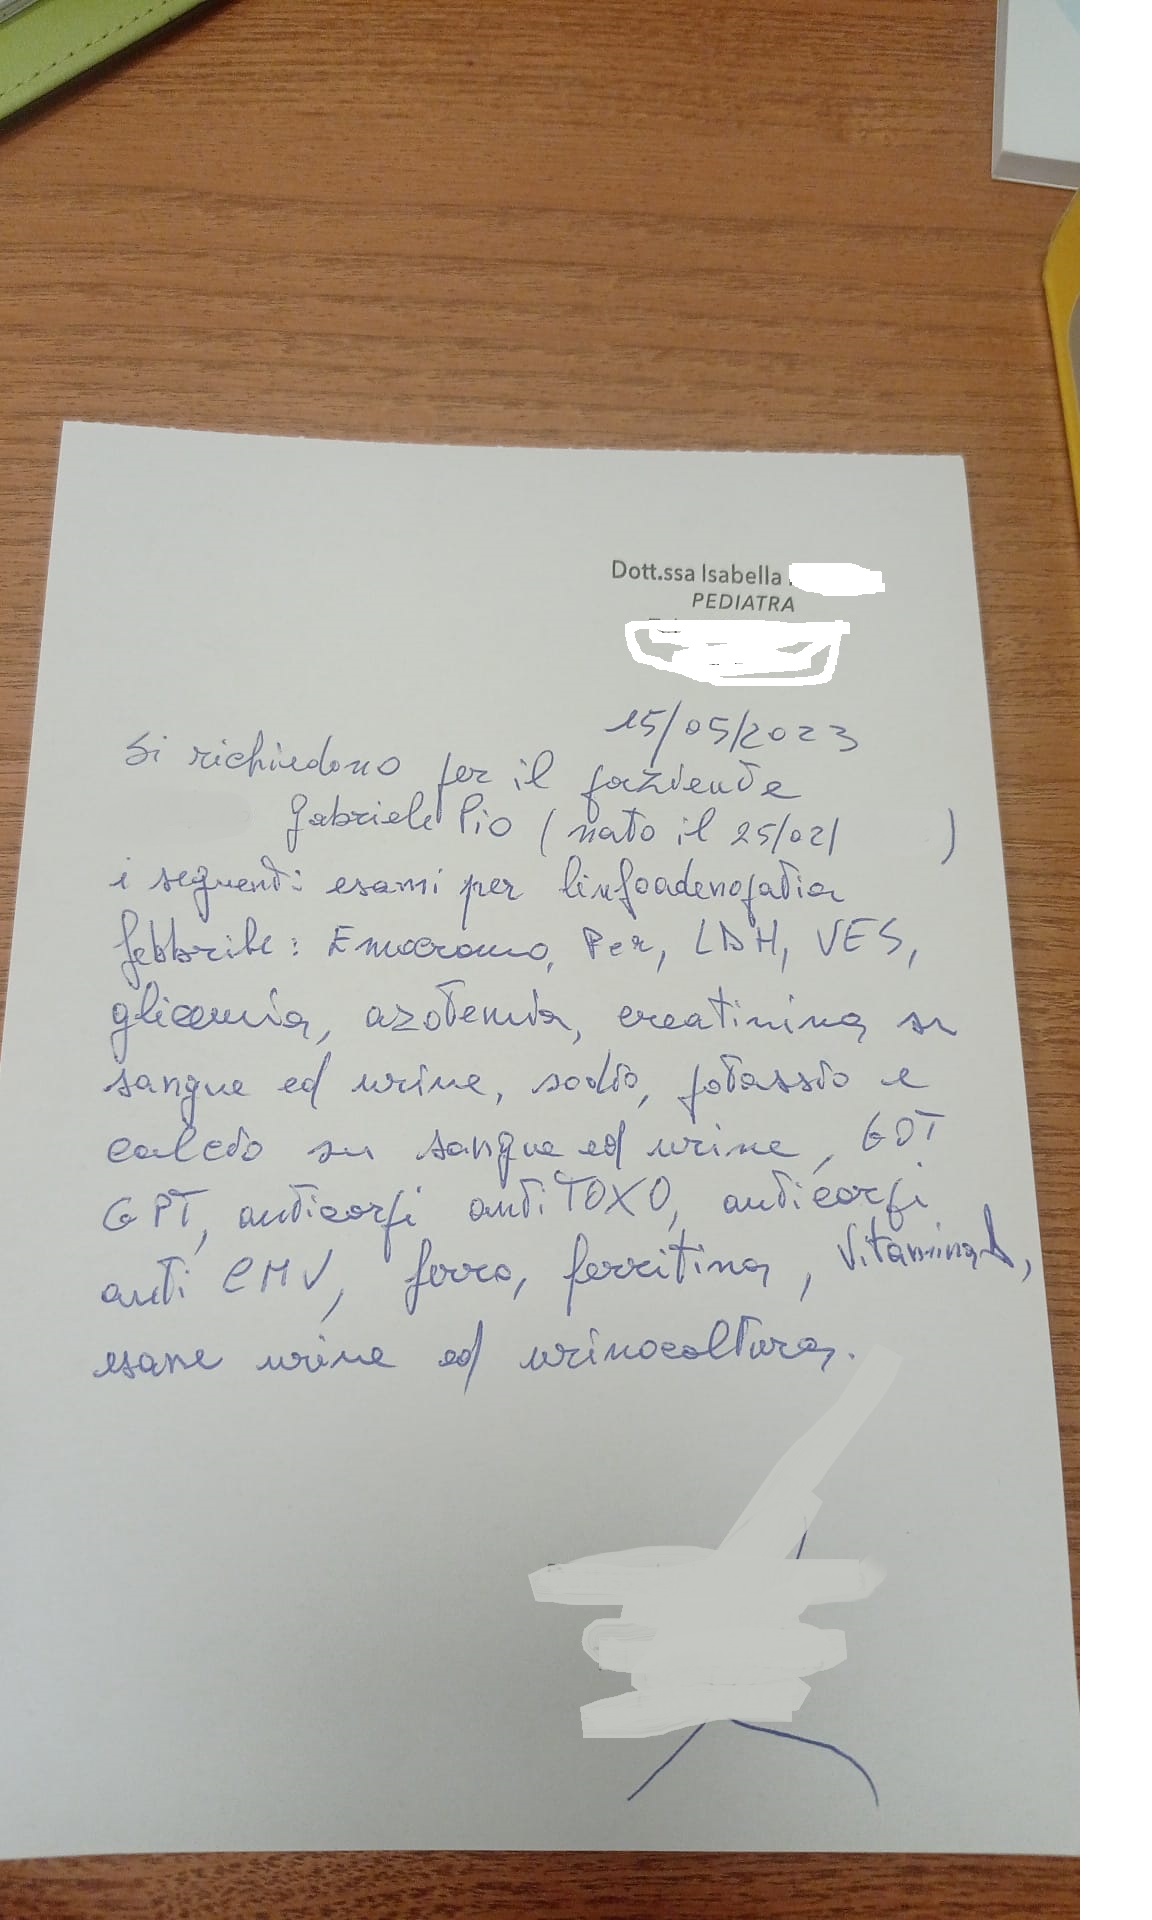 Dott.ssa Isabella
PEDIATRA
15/05/2023
Si richiedono per il paziente
Gabriele Pio (nato il 25/02/ )
i seguenti esami per linfoadenopatia
febbrile: Emocromo, Pcr, LDH, VES,
glicemia, azotemia, creatinina su
sangue ed urine, sodio, potassio e
calcio su sangue ed urine, GOT
GPT, anticorpi anti TOXO, anticorpi
anti CMV, ferro, ferritina, Vitamina D,
esame urine ed urinocoltura.